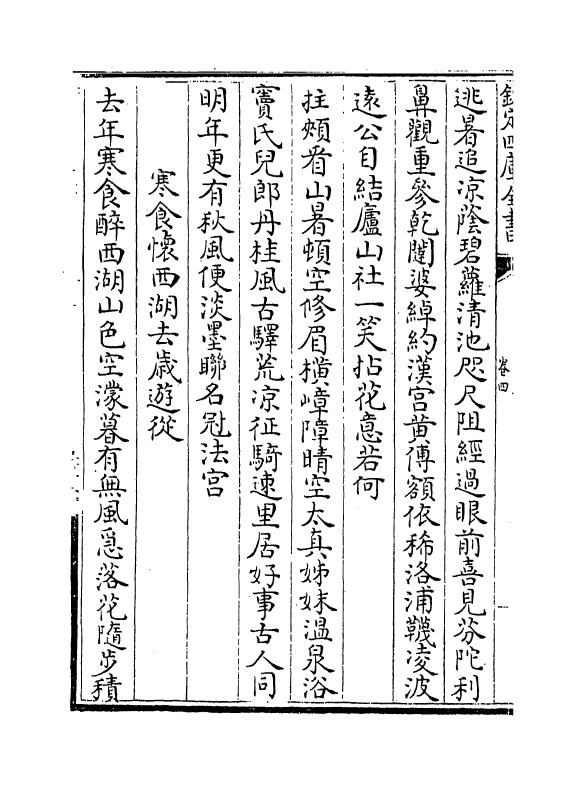 欽定四庫全書
卷四
逃暑追凉蔭碧蘿清池咫尺阻經過眼前喜見芬陀利
鼻觀重參乾闥婆綽約漢宫黄傅額依稀洛浦韈凌波
遠公自結廬山社一笑拈花意若何
拄頰看山暑頓空修眉橫嶂障晴空太真姊妹溫泉浴
竇氏兒郎丹桂風古驛荒凉征騎速里居好事古人同
明年更有秋風便淡墨聯名冠法宫
寒食懷西湖去歲遊從
去年寒食醉西湖山色空濛暮有無風急落花隨步積